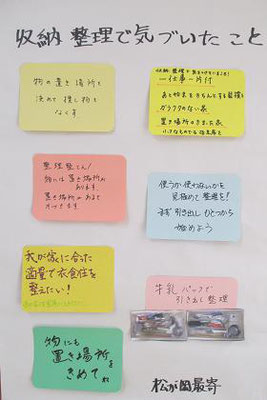 収納 整理で気づいたこと
物の置き場所を
決めて探し物を
なくす
一仕事一片付
あと始末をきちんとする習慣
ガラクタのない家
置き場所のきまった家
整理整とん!
物には置き場所が
あります
置き場所があるで
使うか使わないかを
見極めて整理を!
まず引き出しひとつから
始めよう
我が家に合った
適量で衣食住を
整えたい!
牛乳パックで
引き出し整理
物にも
置き場所を
きめてね
松が岡最寄